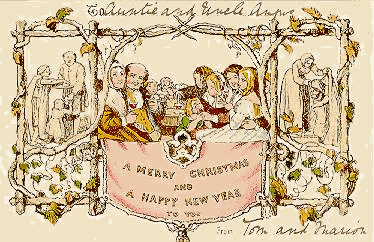 To Auntie and Uncle Angus
A MERRY CHRISTMAS
AND
A HAPPY NEW YEAR
TO YOU
From Tom and Marion